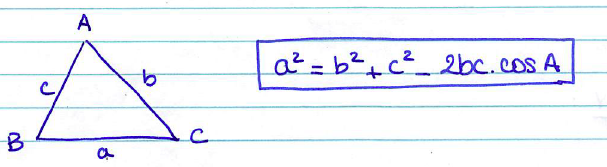 A
c
b
B
a
C
a² = b² + c² - 2bc.cos A